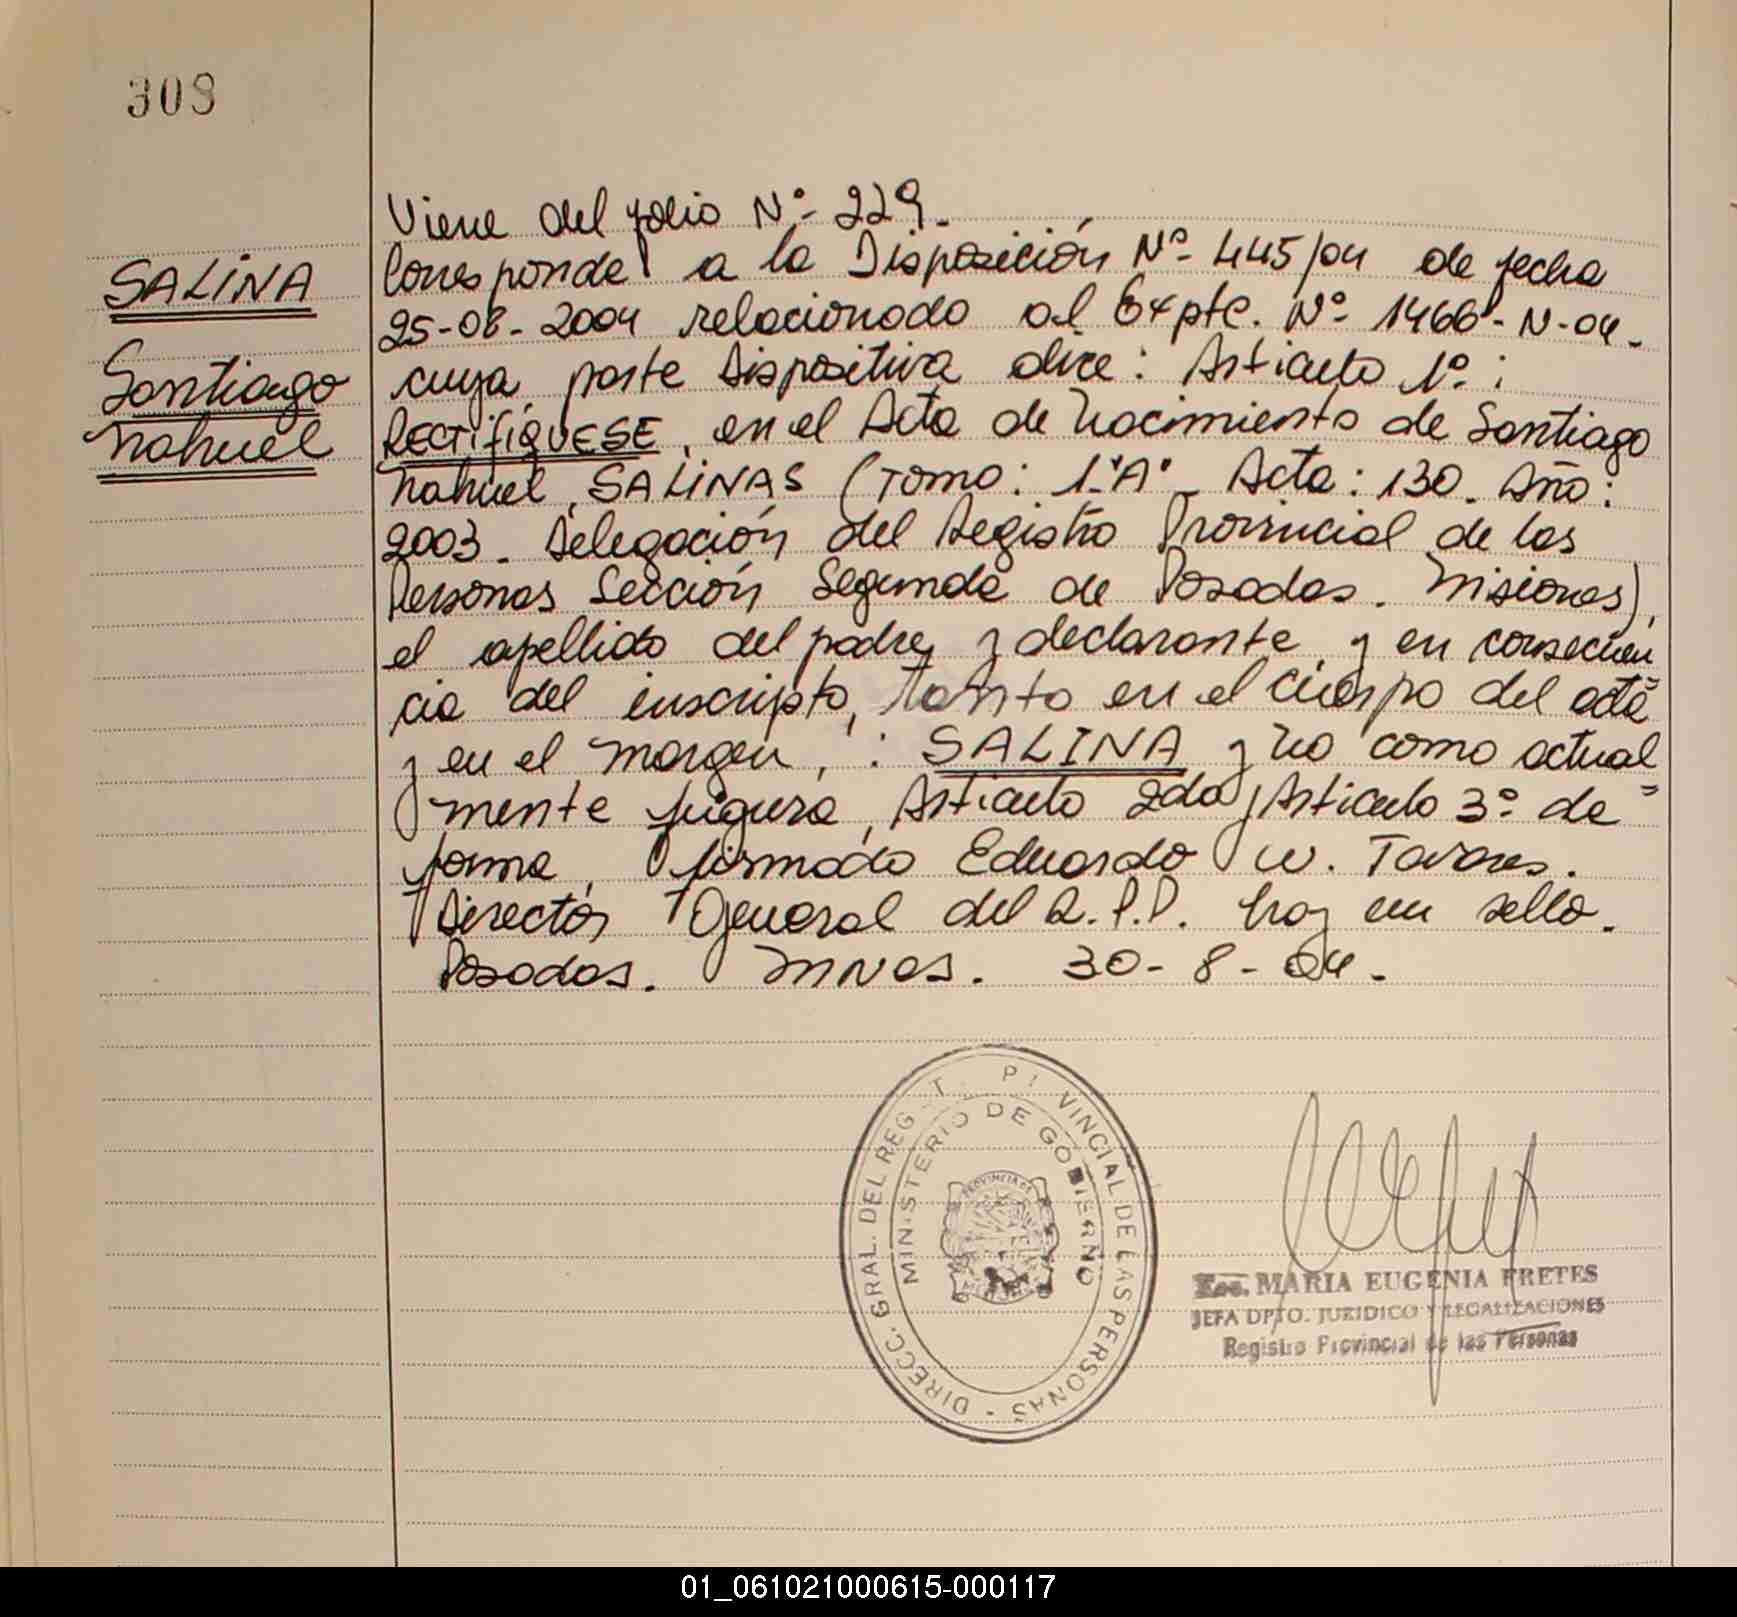 308
SALINA
Santiago
Nahuel
Viene del folio Nº 229.
Corresponde a la Disposición Nº 445/04 de fecha
25-08-2004 relacionado al Expte. Nº 1466-N-04.
cuya parte Dispositiva dice: Articulo 1º:
RECTIFIQUESE, en el Acta de Nacimiento de Santiago
Nahuel, SALINAS (Tomo: 1º"A" Acta: 130. Año:
2003. Delegación del Registro Provincial de las
Personas Sección Segunda de Posadas. Misiones),
el apellido del padre y declarante, y en consecuen
cia del inscripto, tanto en el cuerpo del acta
y en el margen, : SALINA y no como actual=
mente figura, Articulo 2do y Articulo 3º de
forma, firmado Eduardo W. Tavares.
Director General del R.P.P. hay un sello.
Posadas. MNES. 30-8-04.
DIRECC. GRAL. DEL REG VINCIAL DE LAS PERSONAS -
MINISTERIO DE GOBIERNO
PROVINCIA DE
Esc. MARIA EUGENIA FRETES
JEFA DPTO. JURIDICO Y LEGALIZACIONES
Registro Provincial de las Personas
01_061021000615-000117